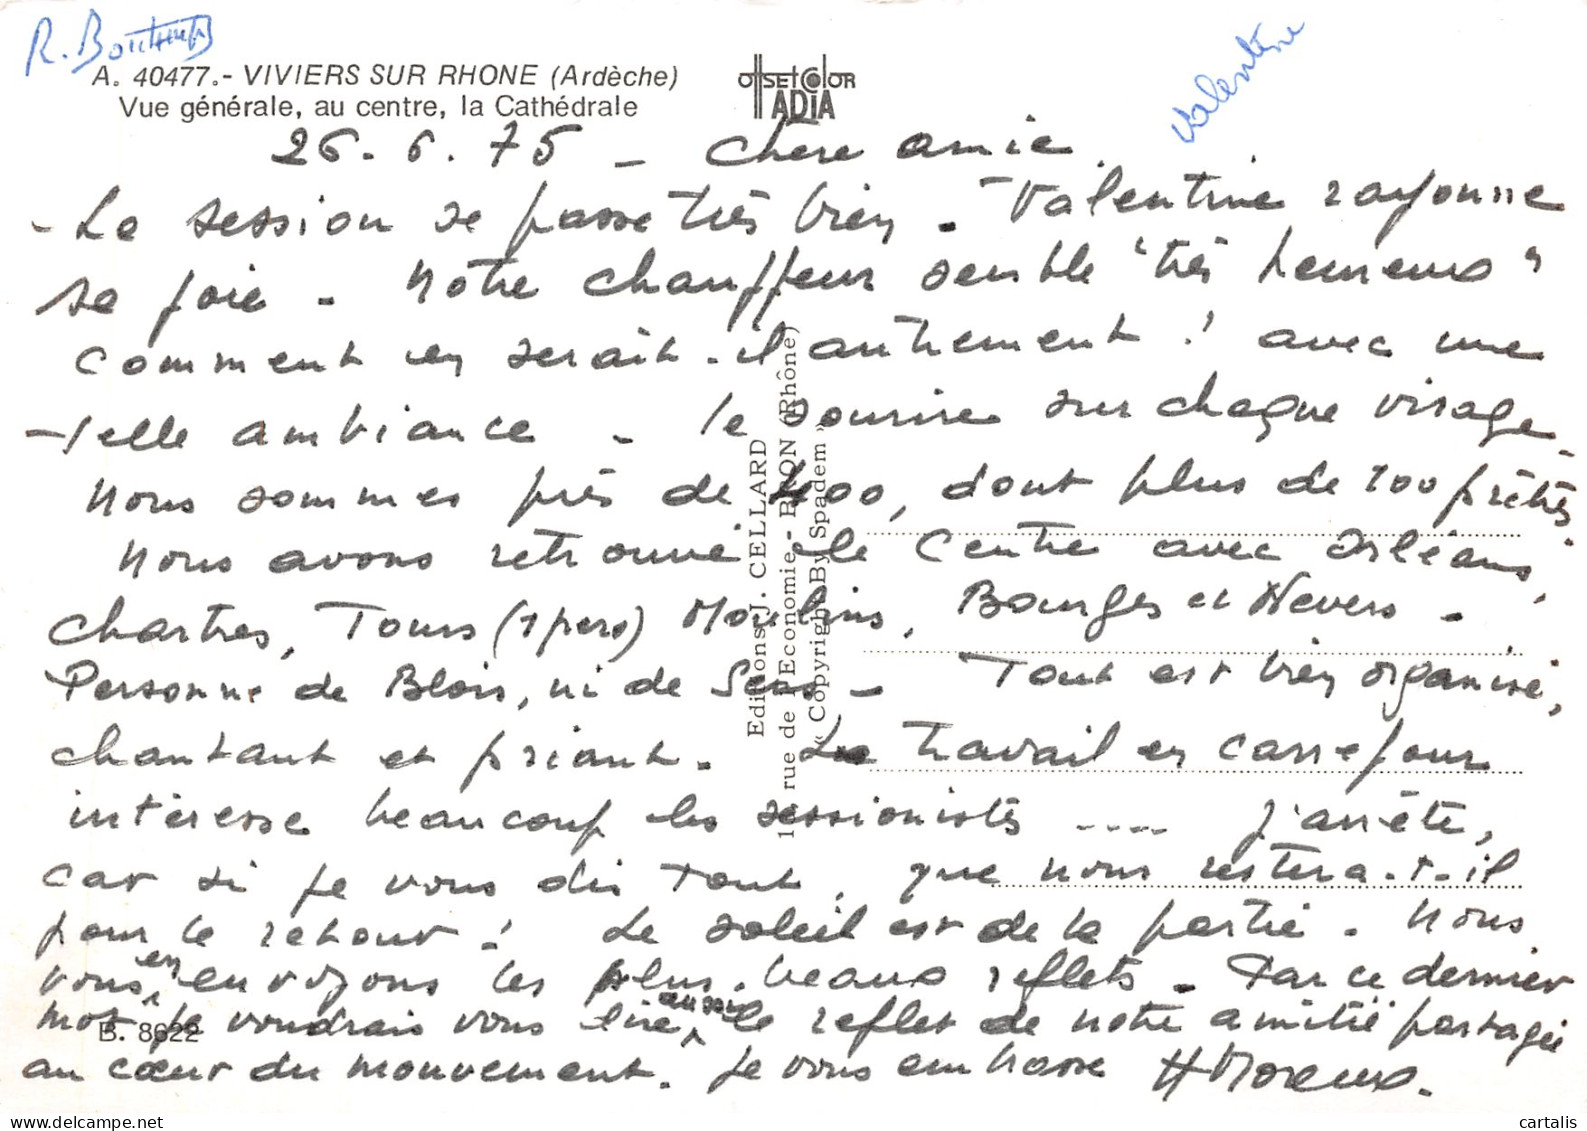 R.
Valentine
A. 40477.- VIVIERS SUR RHONE (Ardèche)
Vue générale, au centre, la Cathédrale
OFFSET COLOR
ADIA
26.6.75 - Chère amie,
- La session se passe très bien. - Valentine rayonne
sa joie. Notre chauffeur semble "très heureux"
comment en serait-il autrement ! avec une
telle ambiance. le sourire sur chaque visage.
Nous sommes près de 400, dont plus de 100 prêtres.
Nous avons retrouvé le Centre avec Orléans,
Chartres, Tours (1 pers) Moulins, Bourges et Nevers -
Personne de Blois, ni de Sens - Tout est bien organisé,
chantant et priant. Le travail en carrefour
intéresse beaucoup les sessionistes .... J'arrête,
car si je vous dis tout, que nous restera-t-il
pour le retour ! Le soleil est de la partie. Nous
vous en envoyons les plus beaux reflets - Par ce dernier
mot je voudrais vous lire aussi le reflet de notre amitié partagée
au cœur du mouvement. Je vous embrasse H Moreux.
Editions J. CELLARD
rue de l'Economie - BRON (Rhône)
« Copyright By Spadem »
B. 8622
© cartalis